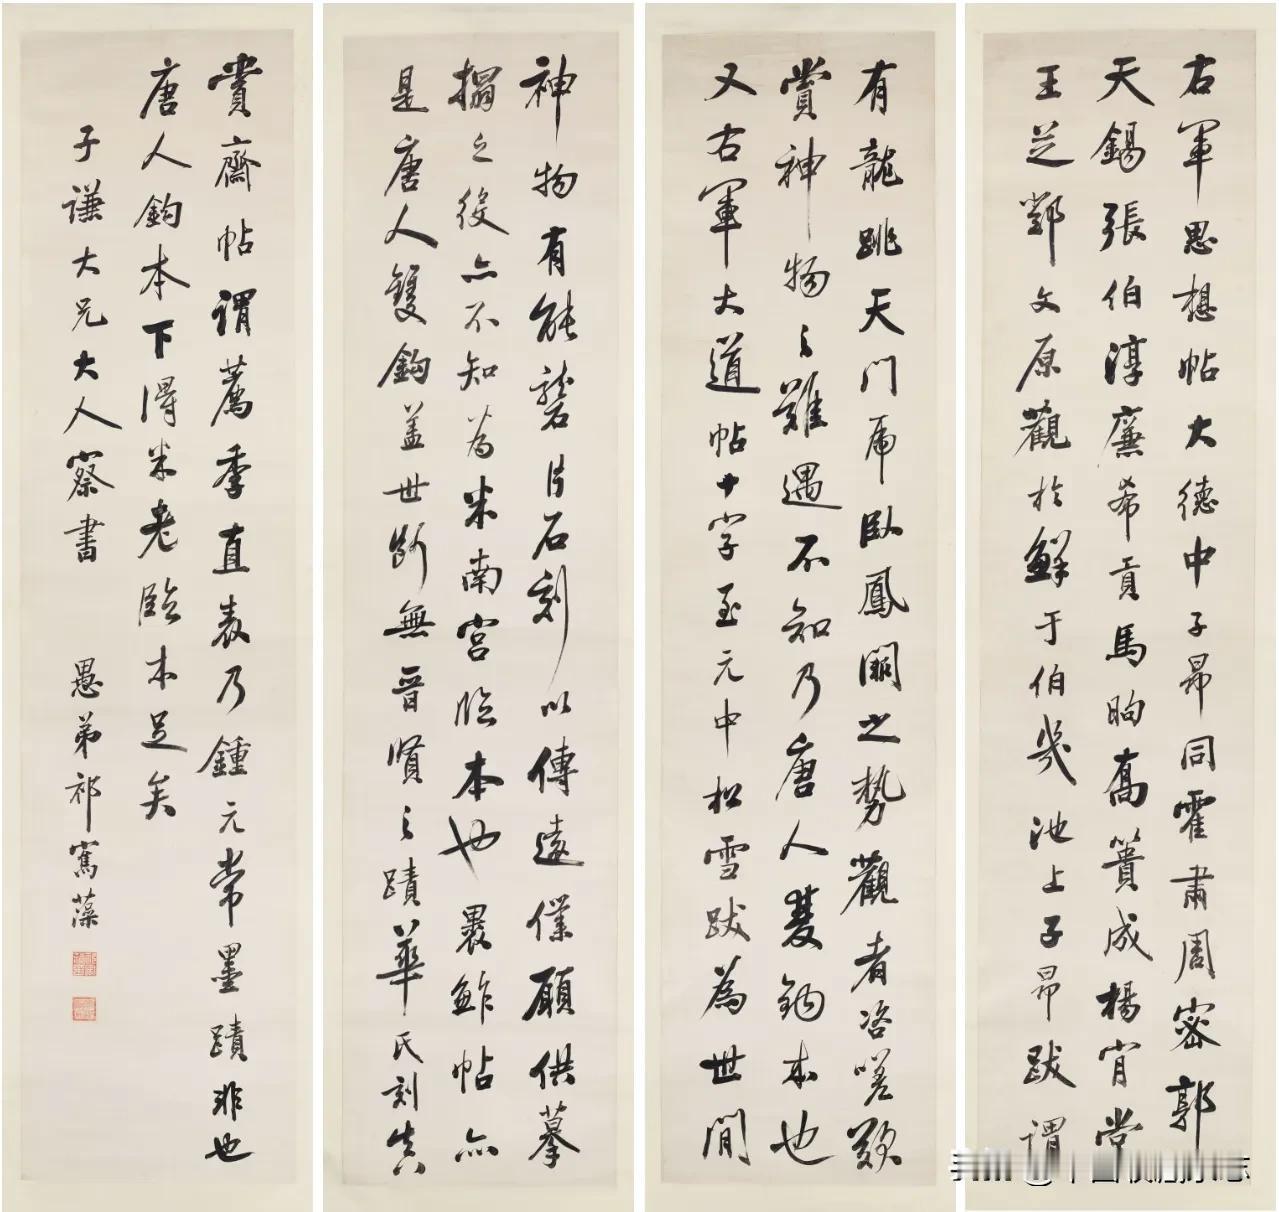 右軍思想帖大德中子昂同霍肅周密郭
天錫張伯淳廉希貢馬昫喬簣成楊肯堂
王芝鄧文原觀於鮮于伯幾池上子昂跋謂
有龍跳天門虎臥鳳闕之勢觀者咨嗟歎
賞神物之難遇不知乃唐人雙鉤本也
又右軍大道帖十字至元中松雪跋為世間
神物有能礱片石刻以傳遠僕願供摹
搨之役亦不知為米南宮臨本也裹鮓帖亦
是唐人雙鉤蓋世斷無晉賢之蹟華氏刻真
賞齋帖謂薦季直表乃鍾元常墨蹟非也
唐人鈎本下得米老臨本足矣
子謙大兄大人察書
愚弟祁寯藻